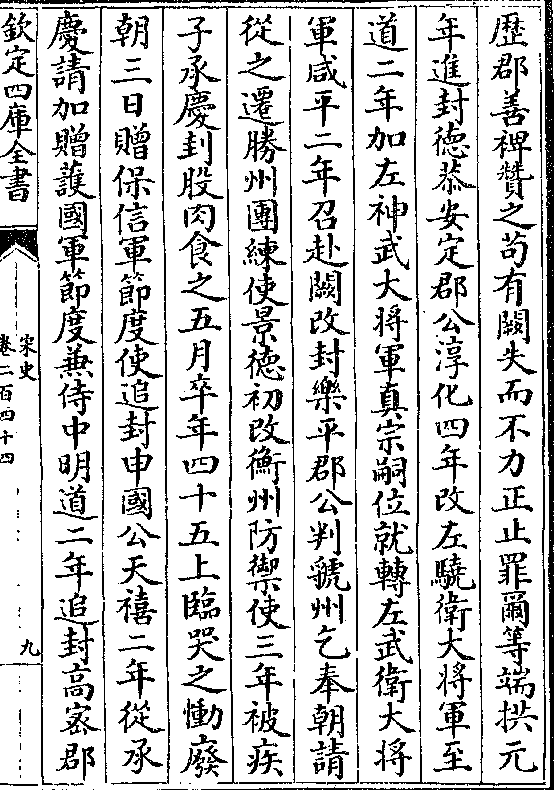 歴郡善裨贊之苟有闕失而不力正止罪爾等端拱元
年進封德恭安定郡公淳化四年改左驍衛大將軍至
道二年加左神武大將軍真宗嗣位就轉左武衛大將
軍咸平二年召赴闕改封樂平郡公判虢州乞奉朝請
從之遷勝州團練使景德初改衡州防禦使三年被疾
子承慶刲股肉食之五月卒年四十五上臨哭之慟廢
朝三日贈保信軍節度使追封申國公天禧二年從承
慶請加贈䕶國軍節度兼侍中明道二年追封高宻郡
欽定四庫全書
宋史
卷二百四十四
九